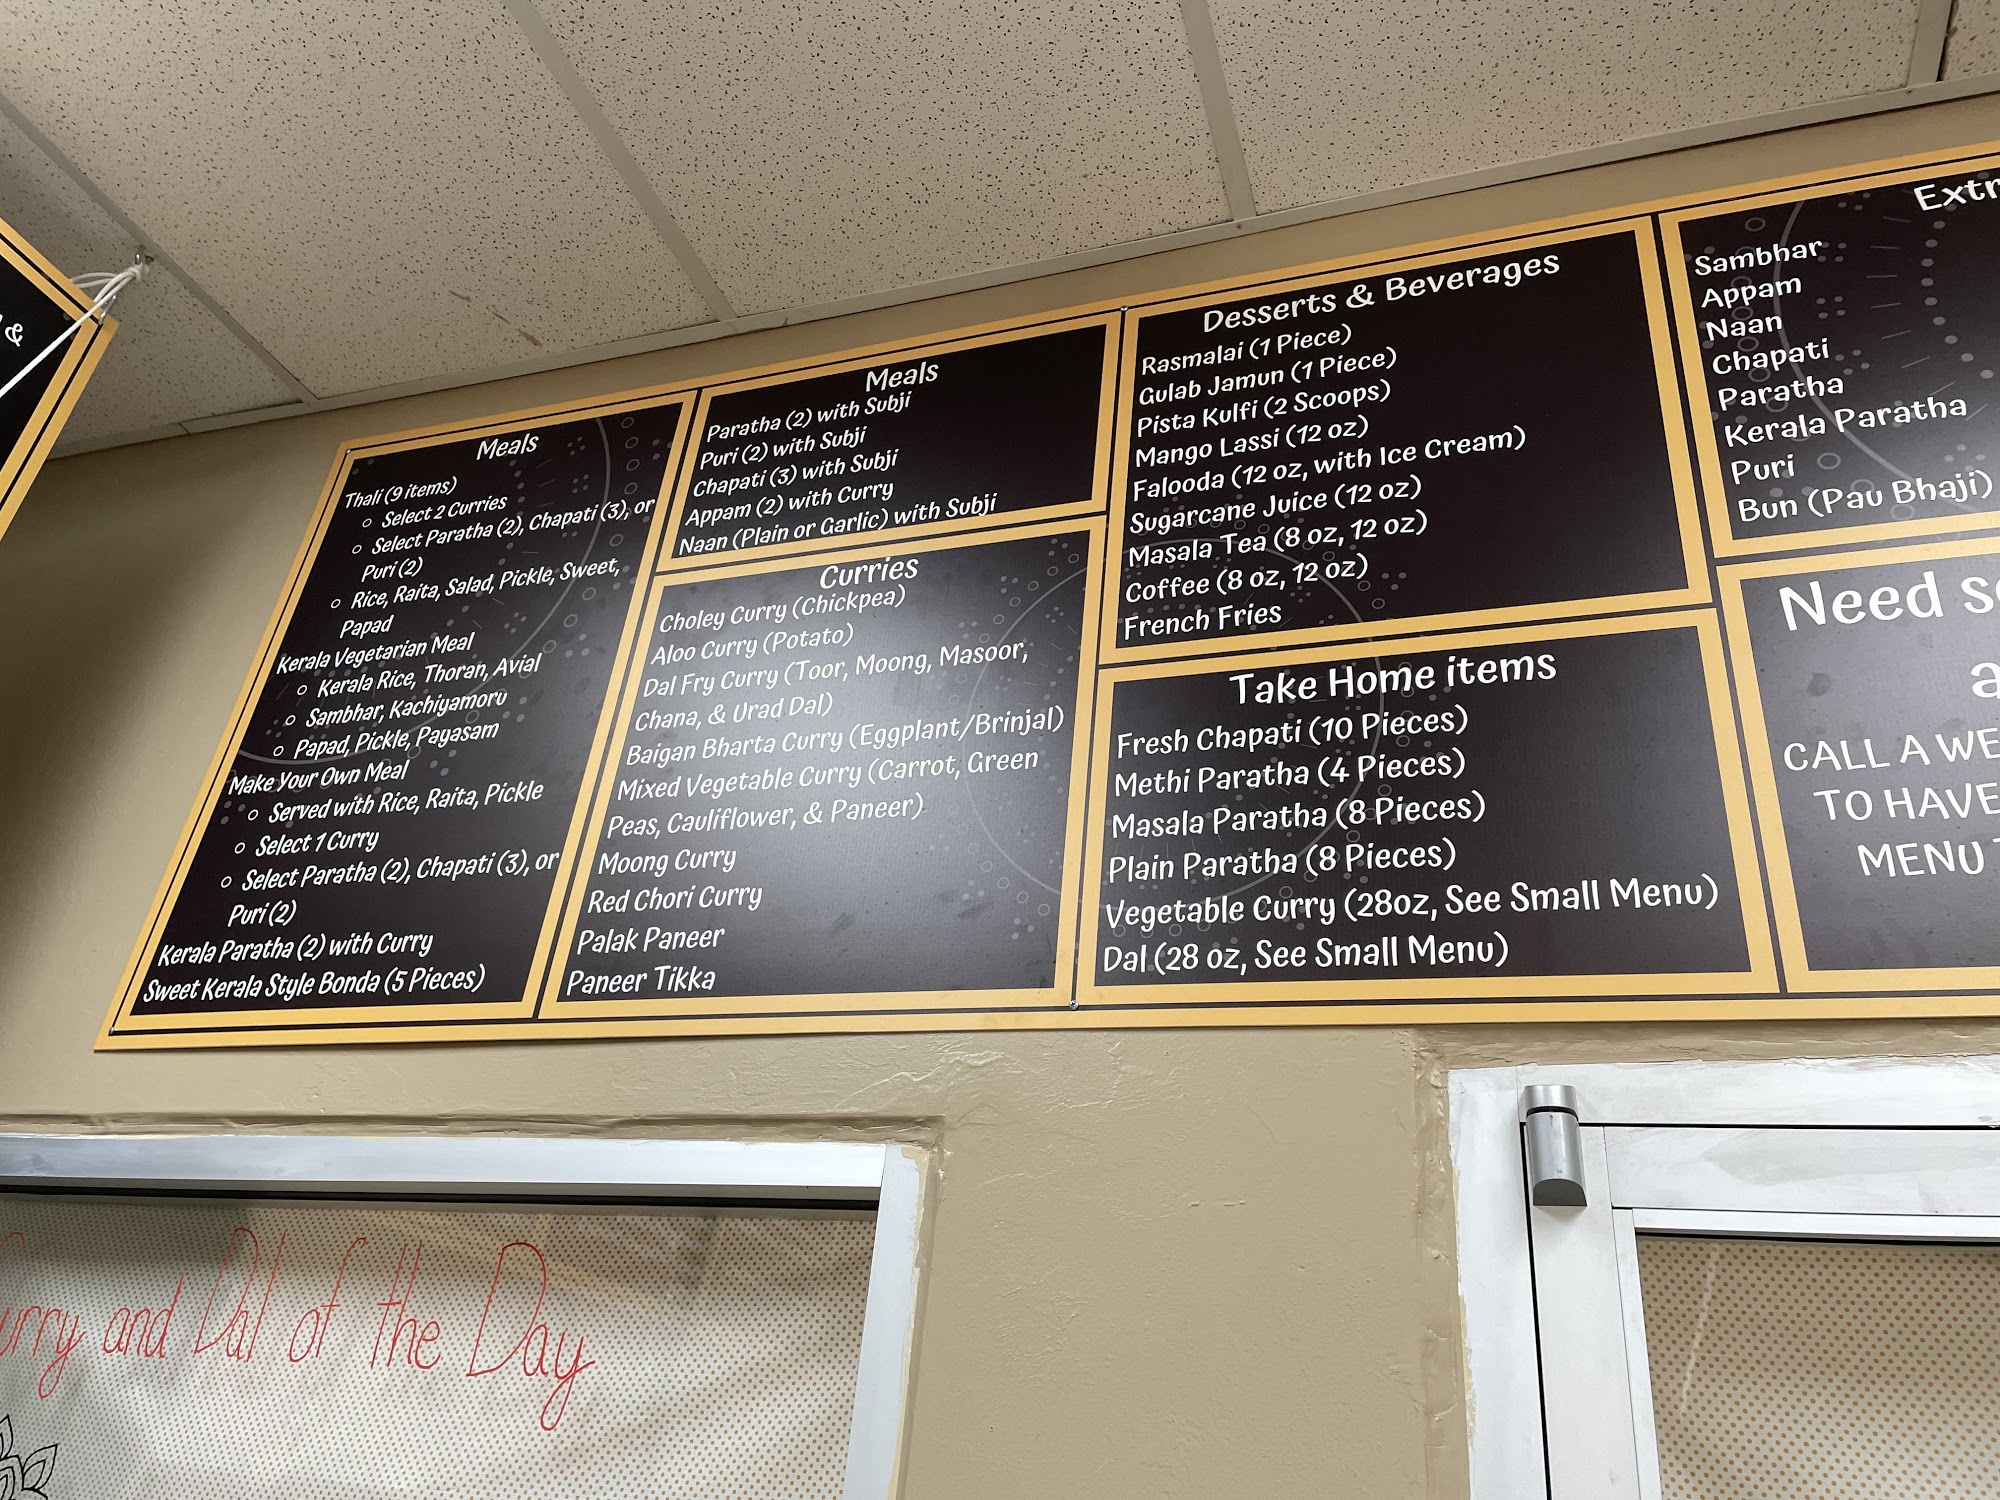 &
Meals
Thali (9 items)
Select 2 Curries
Select Paratha (2), Chapati (3), or
Puri (2)
Rice, Raita, Salad, Pickle, Sweet,
Papad
Kerala Vegetarian Meal
Kerala Rice, Thoran, Avial
Sambhar, Kachiyamoru
Papad, Pickle, Payasam
Make Your Own Meal
Served with Rice, Raita, Pickle
Select 1 Curry
Select Paratha (2), Chapati (3), or
Puri (2)
Kerala Paratha (2) with Curry
Sweet Kerala Style Bonda (5 Pieces)
Meals
Paratha (2) with Subji
Puri (2) with Subji
Chapati (3) with Subji
Appam (2) with Curry
Naan (Plain or Garlic) with Subji
Curries
Choley Curry (Chickpea)
Aloo Curry (Potato)
Dal Fry Curry (Toor, Moong, Masoor,
Chana, & Urad Dal)
Baigan Bharta Curry (Eggplant/Brinjal)
Mixed Vegetable Curry (Carrot, Green
Peas, Cauliflower, & Paneer)
Moong Curry
Red Chori Curry
Palak Paneer
Paneer Tikka
Desserts & Beverages
Rasmalai (1 Piece)
Gulab Jamun (1 Piece)
Pista Kulfi (2 Scoops)
Mango Lassi (12 oz)
Falooda (12 oz, with Ice Cream)
Sugarcane Juice (12 oz)
Masala Tea (8 oz, 12 oz)
Coffee (8 oz, 12 oz)
French Fries
Take Home items
Fresh Chapati (10 Pieces)
Methi Paratha (4 Pieces)
Masala Paratha (8 Pieces)
Plain Paratha (8 Pieces)
Vegetable Curry (28oz, See Small Menu)
Dal (28 oz, See Small Menu)
Extr
Sambhar
Appam
Naan
Chapati
Paratha
Kerala Paratha
Puri
Bun (Pau Bhaji)
Need
CALL A WE
TO HAVE
MENU
urry and Dal of the Day